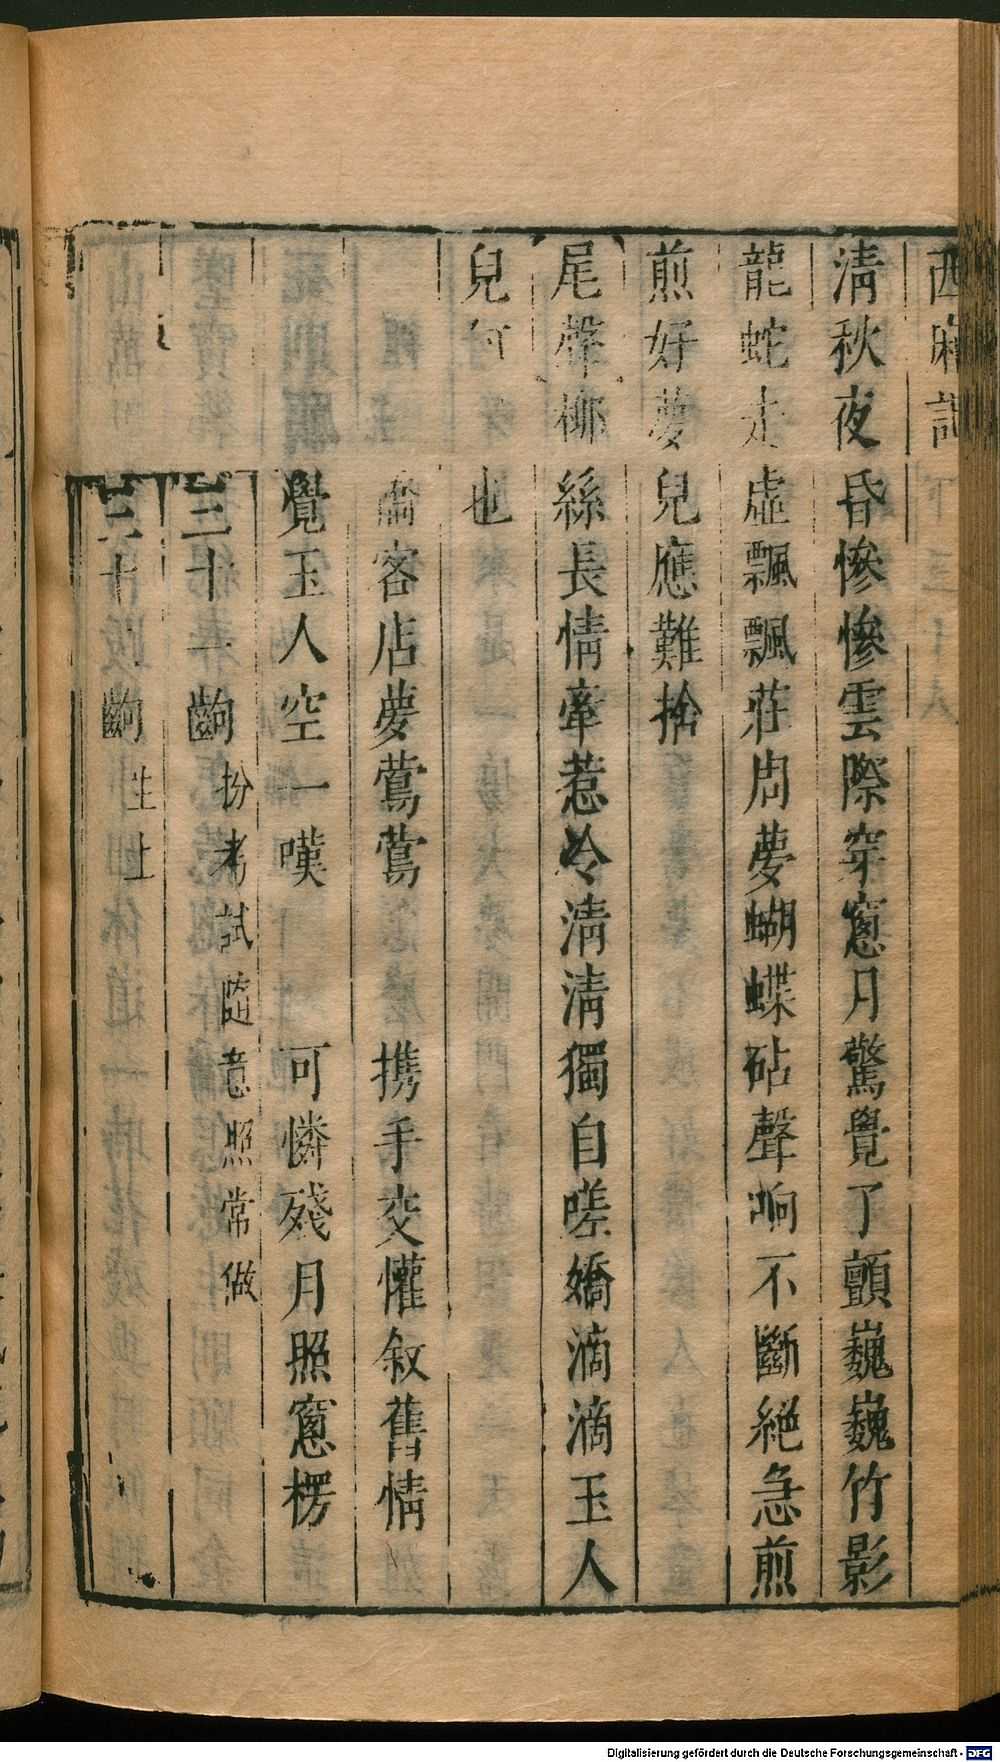 西廂記
清秋夜昏慘慘雲際穿窓月驚覺了顫巍巍竹影
龍蛇走虛飄飄莊周夢蝴蝶砧聲响不斷絕急煎
煎好夢兒應難捨
尾聲柳絲長情牽惹冷清清獨自嗟嬌滴滴玉人
兒何也
客店夢鶯鶯 携手交懽叙舊情
覺玉人空一嘆 可憐殘月照窓楞
三十一齣 扮考試隨意照常做
三十 齣 生上
Digitalisierung gefördert durch die Deutsche Forschungsgemeinschaft - DFG